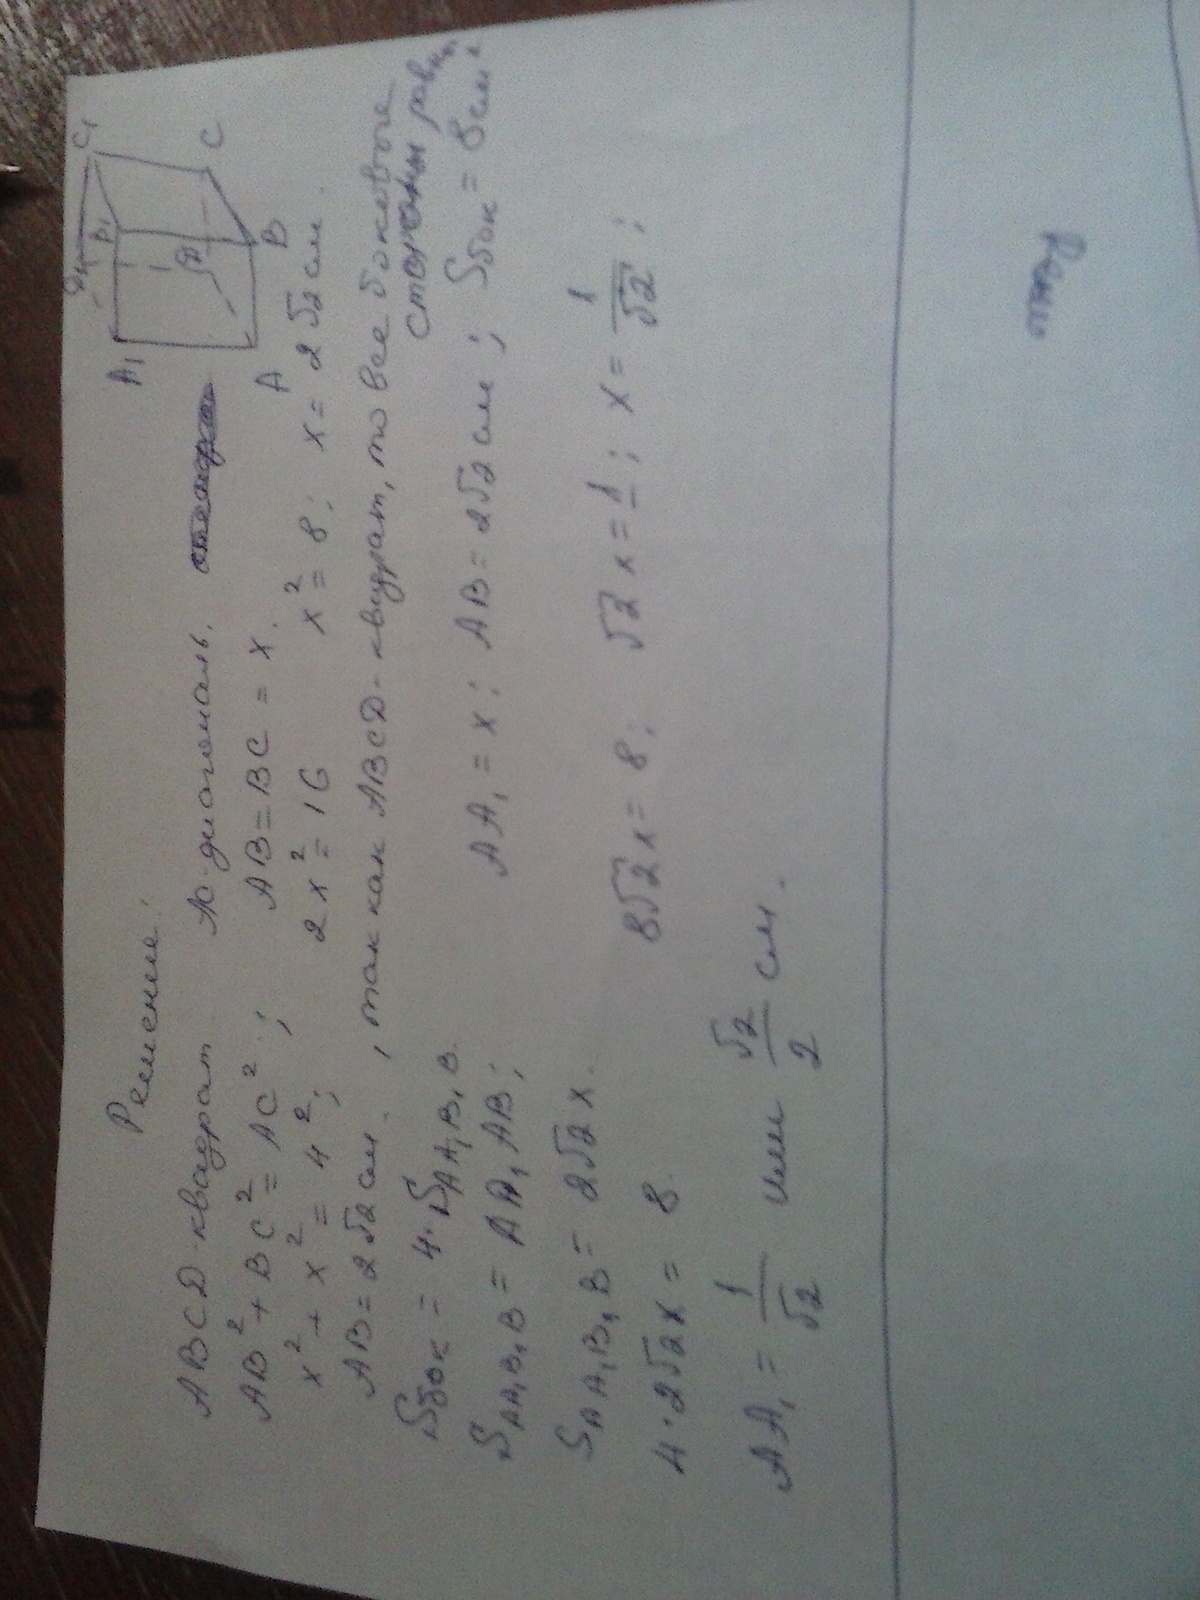 Решение:
ABCD-квадрат AC-диагональ.
AB² + BC² = AC²; AB = BC = x.
x² + x² = 4²; 2x² = 16 x² = 8; x = 2√2 см.
AB = 2√2 см. , так как ABCD-квадрат, то все боковые
стороны равны
Sбок = 4 · SAA₁B₁B.
SAA₁B₁B = AA₁ AB; AA₁ = x; AB = 2√2 см; Sбок = 8 см²
SAA₁B₁B = 2√2 x.
4 · 2√2x = 8. 8√2x = 8; √2x = 1; x = 1/√2;
AA₁ = 1/√2 или √2/2 см.
D₁ C₁
A₁ B₁
D C
A B